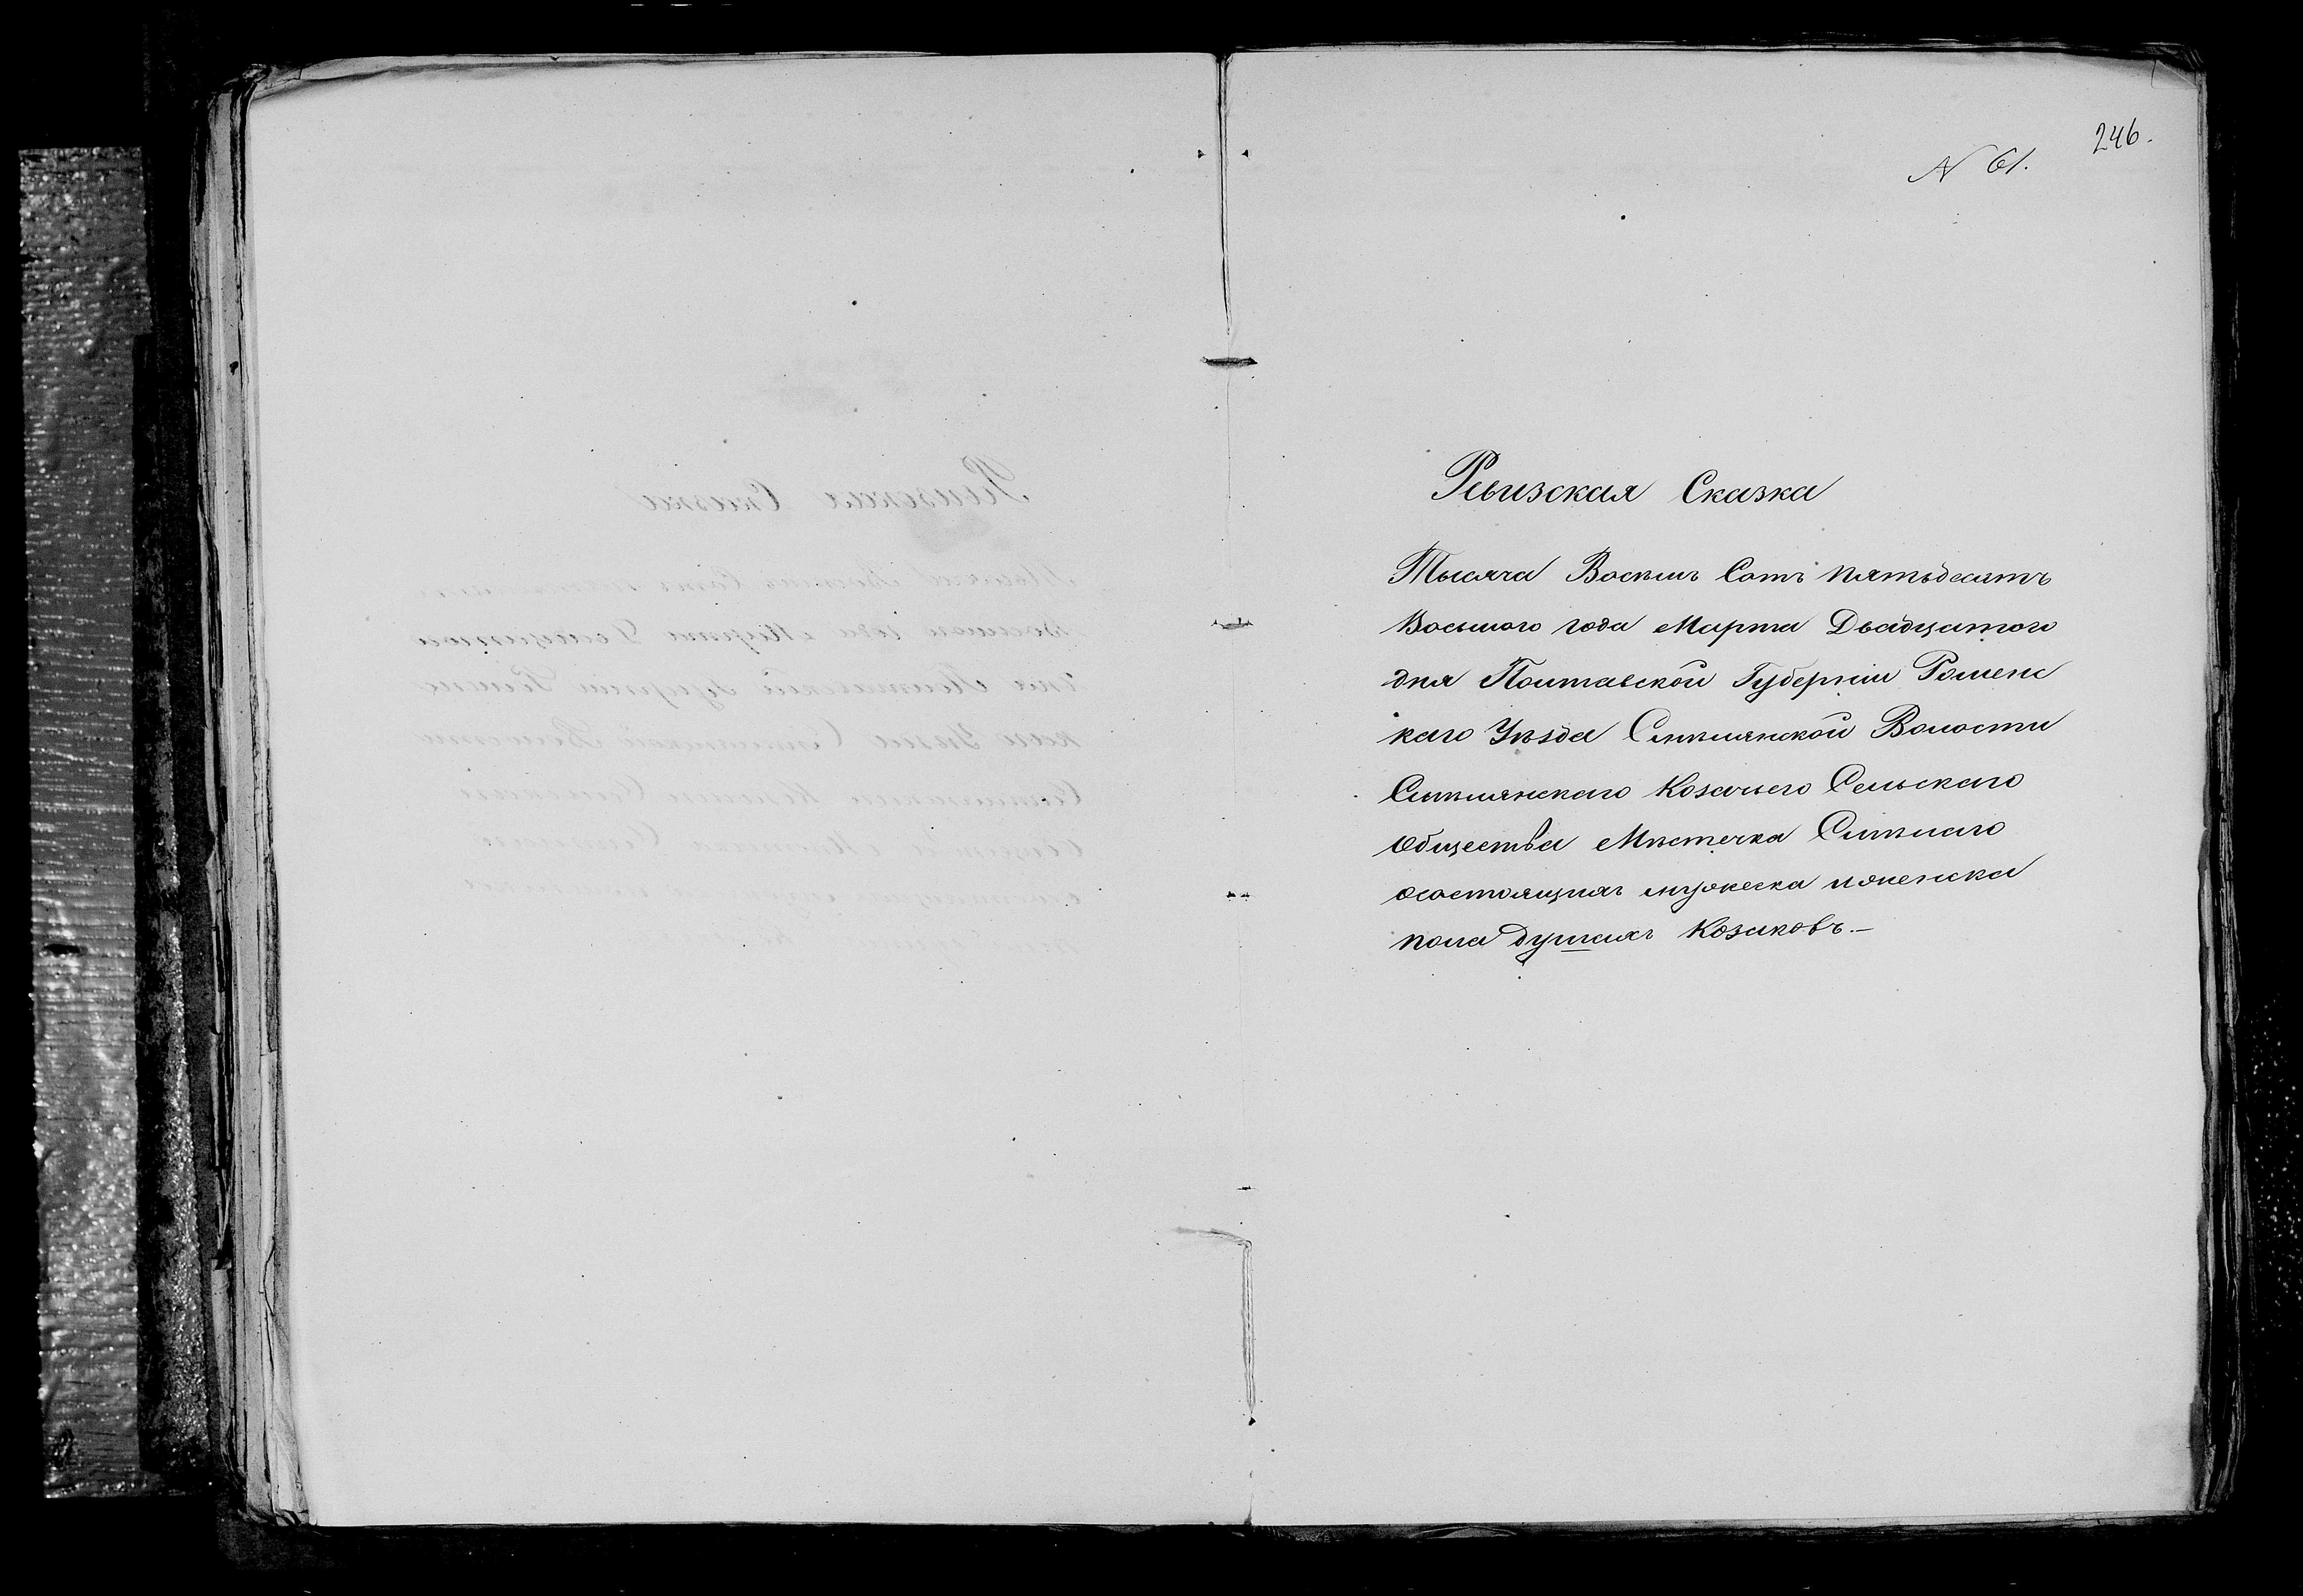 246.
N 61.
Ревизская Сказка
Тысяча Восемь Сотъ пятьдесятъ
Восьмого года Марта Двадцатого
дня Полтавской Губерніи Роменс
каго Уѣзда Смѣлянской Волости
Смѣлянскаго Козачьего Сельскаго
Общества Мѣстечка Смѣлаго
осостоящихъ мужеска иженска
пола душахъ Козаковъ.—